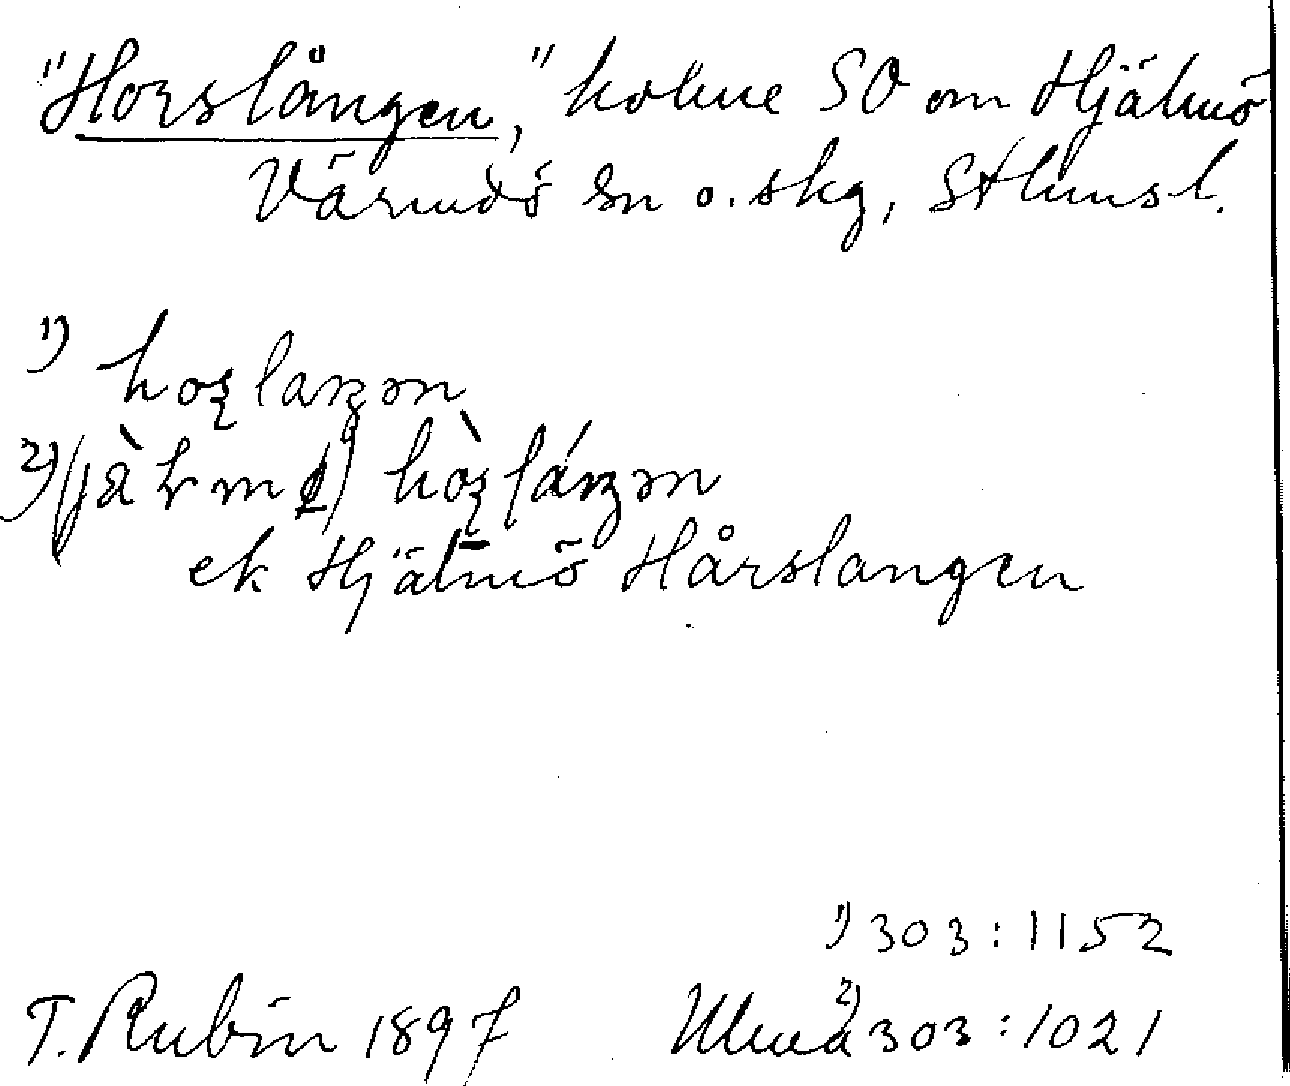 "Horslången," holme SO om Hjälmö
Värmdö sn o. skg, Sthlmsl.
1) hoʂlaŋən
2) hòʂláŋən
ek Hjälmö Hårslangen
1) 303:1152
T. Rubin 1897 Ulma 2) 303:1021